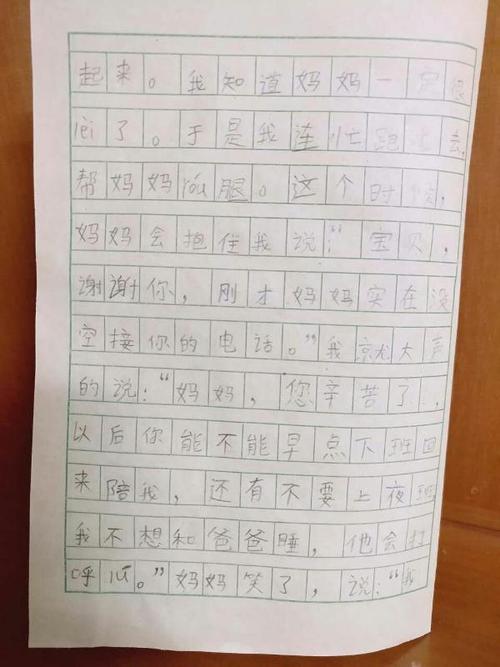 起来。我知道妈妈一定很
lèi了。于是我连忙跑过去,
帮妈妈róu腿。这个时候,
妈妈会抱住我说:“宝贝,
谢谢你,刚才妈妈实在没
空接你的电话。”我京尤大声
的说:“妈妈,您辛苦了,
以后你能不能早点下班回
来陪我,还有不要上夜班
我不想和爸爸睡,他会打
呼lu。”妈妈笑了,说:“我